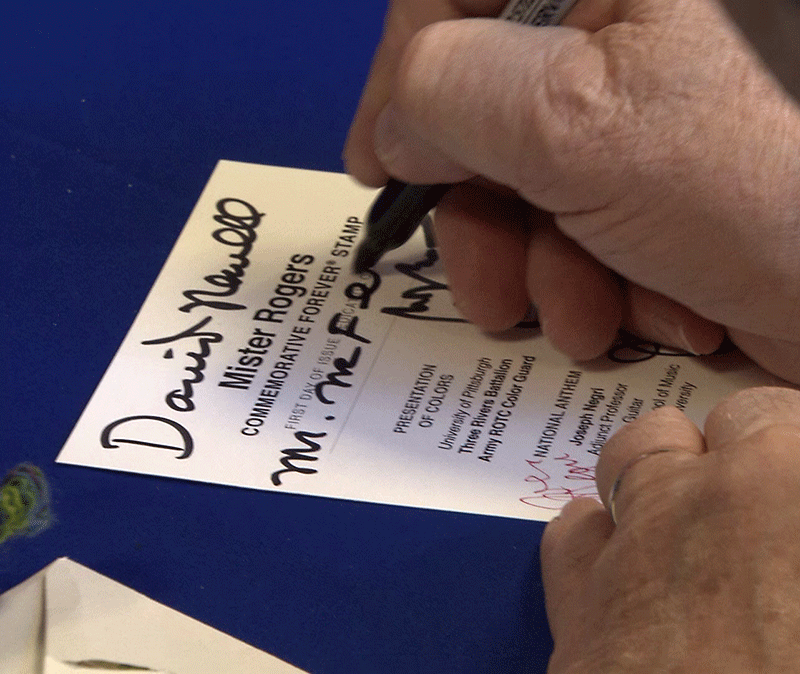 David Newell
Mister Rogers
COMMEMORATIVE FOREVER® STAMP
FIRST DAY OF ISSUE
Mr. McFe
PRESENTATION
OF COLORS
University of Pittsburgh
Three Rivers Battalion
Army ROTC Color Guard
NATIONAL ANTHEM
Joseph Negri
Adjunct Professor
Guitar
of Music